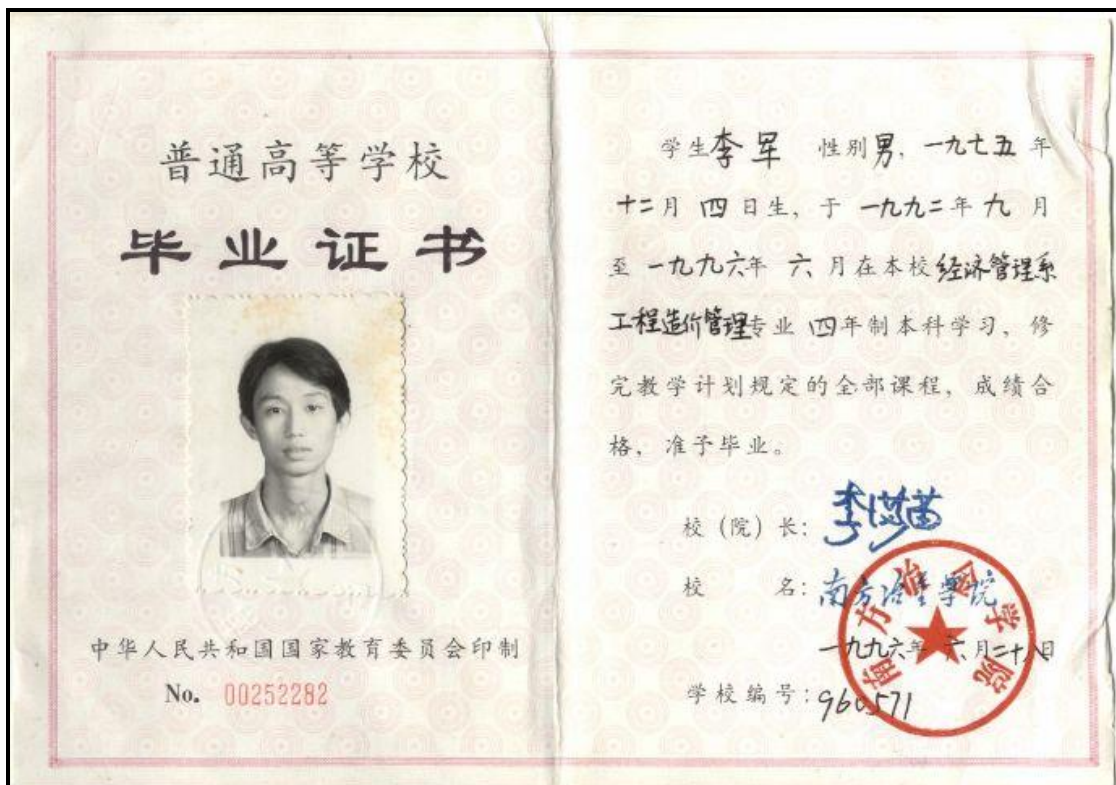 普通高等学校
毕业证书
中华人民共和国国家教育委员会印制
No. 00252282
学生李军 性别男，一九七五年
十二月四日生，于一九九二年九月
至一九九六年六月在本校经济管理系
工程造价管理专业四年制本科学习，修
完教学计划规定的全部课程，成绩合
格，准予毕业。
校（院）长：
校 名：南方冶金学院
一九九六年六月二十八日
学校编号：960571
南方冶金学院